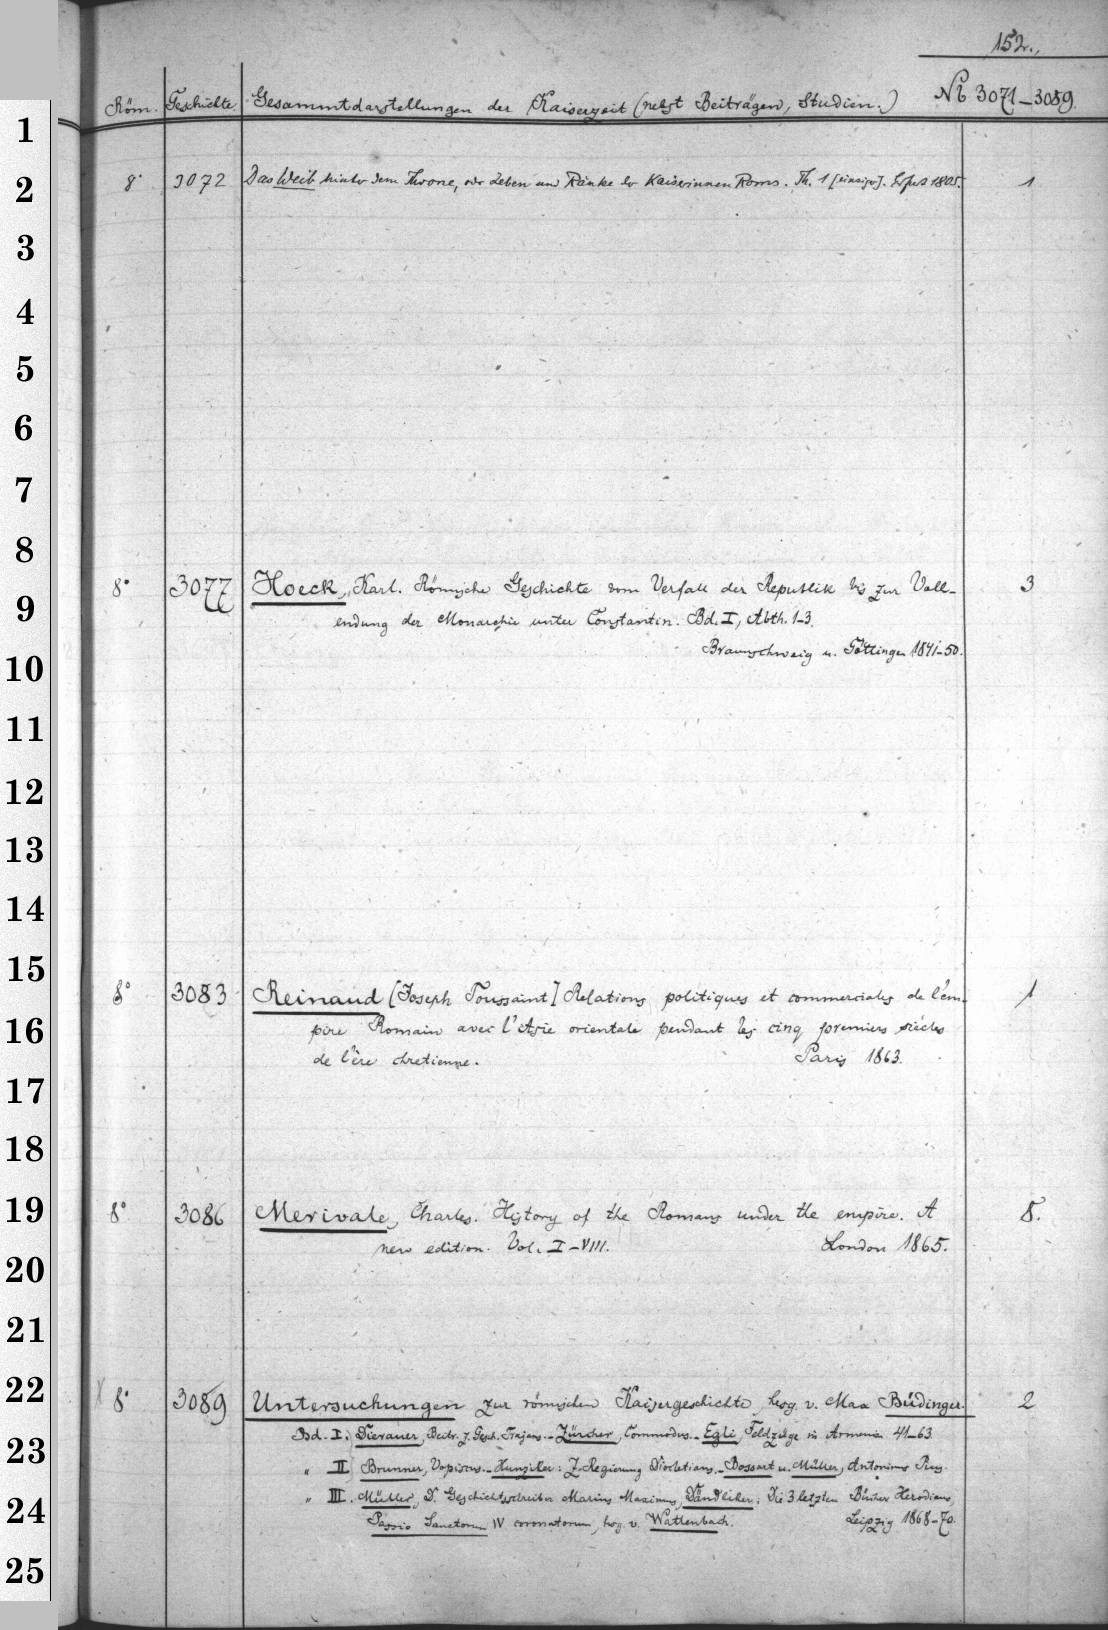 152.
Röm. Geschichte. Gesammtdarstellungen der Kaiserzeit (nebst Beiträgen, Studien.) № 3071–3089.
1
2
3
4
5
6
7
8
9
10
11
12
13
14
15
16
17
18
19
20
21
22
23
24
25
8° 3072 Das Weib hinter dem Throne, oder Leben und Ränke der Kaiserinnen Roms. Th. 1 [einziger]. Erfurt 1805. 1
8° 3077 Hoeck, Karl. Römische Geschichte vom Verfall der Republik bis zur Voll- 3
endung der Monarchie unter Constantin. Bd. I, Abth. 1–3.
Braunschweig u. Göttingen 1841–50.
8° 3083 Reinaud [Joseph Toussaint] Relations politiques et commerciales de l'em- 1
pire Romain avec l'Asie orientale pendant les cinq premiers siècles
de l'ère chretienne. Paris 1863.
8° 3086 Merivale, Charles. History of the Romans under the empire. A 8.
new edition. Vol. I–VIII. London 1865.
8° 3089 Untersuchungen zur römischen Kaisergeschichte, hrsg. v. Max Büdinger. 2
Bd. I. Dierauer, Beitr. z. Gesch. Trajans. – Zürcher, Commodus. – Egli, Feldzüge in Armenien 41–63
" II Brunner, Vopiscus. – Hunziker: Z. Regierung Diocletians. – Bossart u. Müller, Antoninus Pius.
" III. Müller, D. Geschichtsschreiber Marius Maximus, Dändliker: Die 3 letzten Bücher Herodians,
Passio Sanctorum IV coronatorum, hrsg. v. Wattenbach. Leipzig 1868–70.